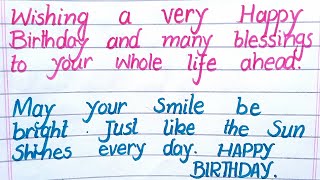 Wishing a very Happy
Birthday and many blessings
to your whole life ahead.
May your Smile be
bright. Just like the Sun
Shines every day. HAPPY
BIRTHDAY.